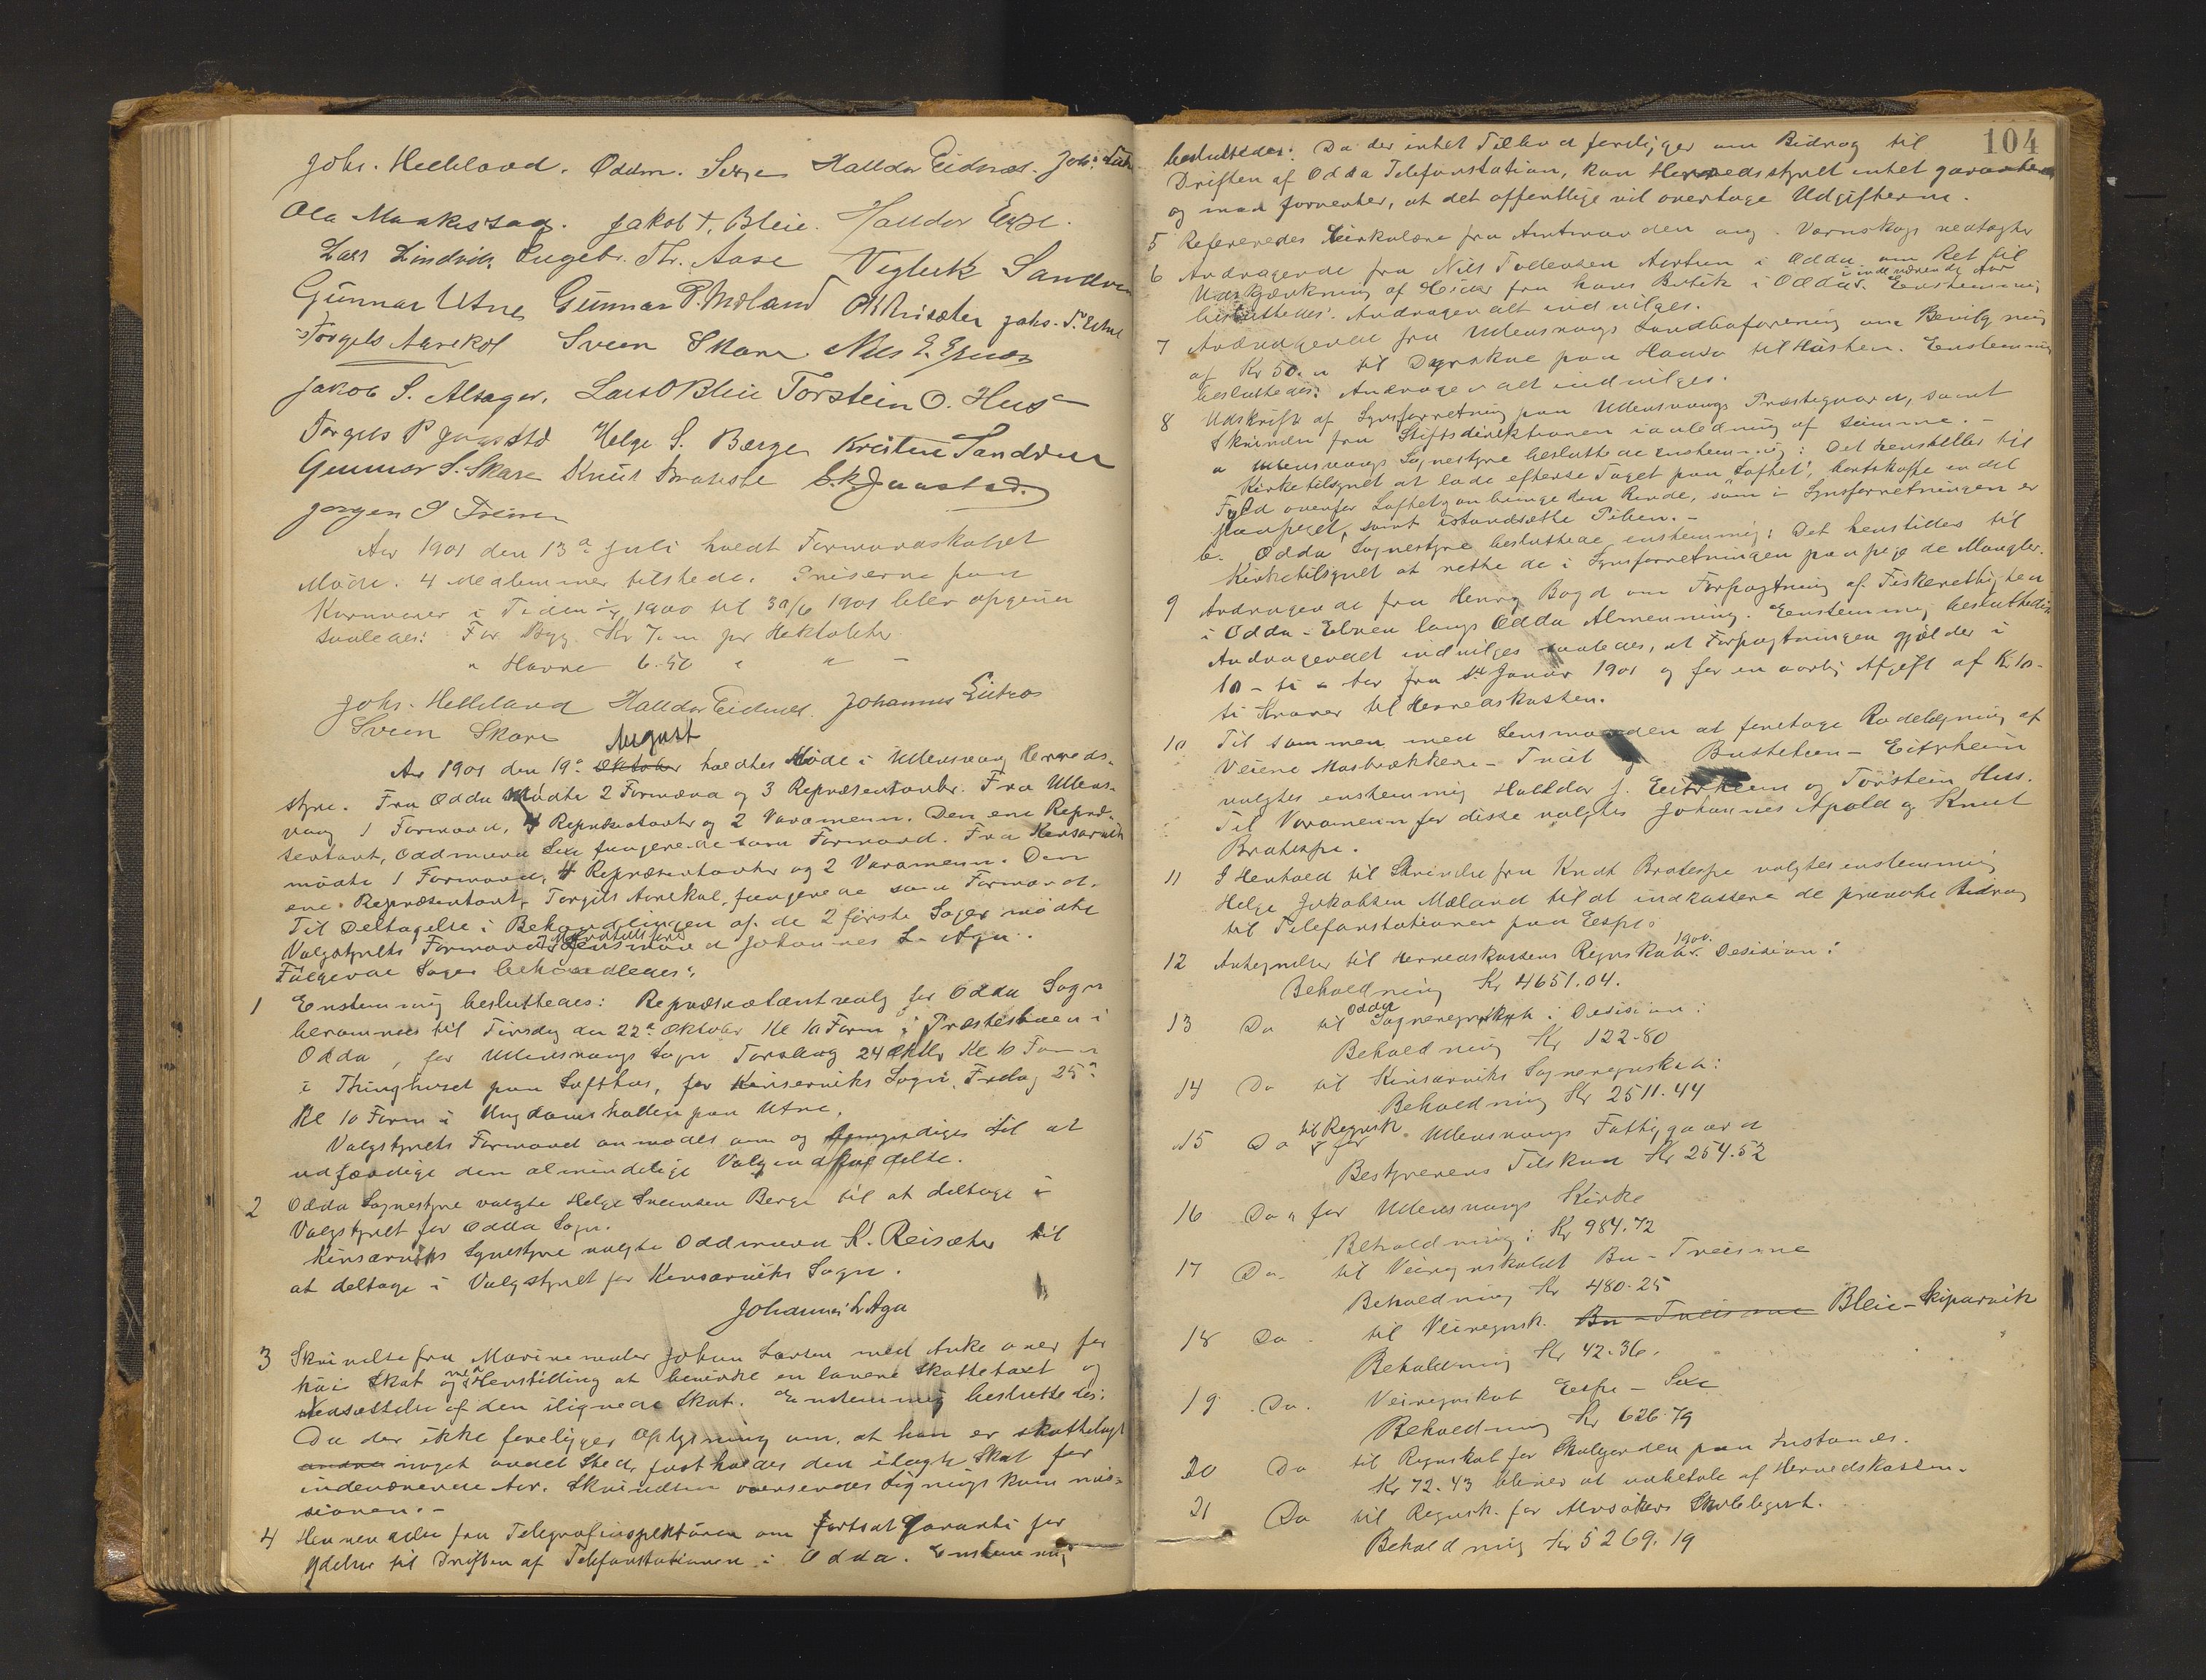 Johs. Helleland. Oddm. Sexe Halldor Eidnes. Johs.
Ola Maakestad. Jakob T. Bleie. Halldor Espe.
Lars Lindvik Engebr. Th. Aase Vigleik Sandven
Gunnar Utne Gunnar P. Mæland O K Reisæter Johs. T. Utne
Torgils Aarekol Sveen Skare Nils E. Espen
Jakob S. Alsager. Lars O Bleie Torstein O. Hus
Torgils P Jaastad Helge S. Berge Kristen Sandven
Gunnar S. Skare Knut Bratespe S. K. Jaastad.
Jørgen S Freim
Aar 1901 den 13de Juli holdt Formandskabet
Møde. 4 Medlemmer tilstede. Priserne paa
Kornvarer i Tiden 1/7 1900 til 30/6 1901 blev opgiven
saaledes: For Byg Kr 7. pr Hektoliter
" Havre 6.50 " " -
Johs. Helleland Halldor Eidnes. Johannes Eitro
Sveen Skare
August
Aar 1901 den 19de Oktober holdtes Møde i Ullensvang Herreds-
styre. Fra Odda Mødte 2 Formænd og 3 Repræsentanter. Fra Ullens-
vang 1 Formand, 4 Repræsentanter og 2 Varamenn. Den ene Repræ-
sentant, Oddmund Sexe fungerede som Formand. Fra Kinsarvik
mødte 1 Formand, 4 Repræsentanter og 2 Varamenn. Den
ene Repræsentant, Torgils Aarekol, fungerede som Formand.
Til Deltagelse i Behandlingen af de 2 første Sager mødte
Valgstyrets Formand Lensmand Johannes L. Aga.
Følgende Sager behandledes:
1 Enstemmig besluttedes: Repræsentantvalg for Odda Sogn
berammes til Tirsdag den 22de Oktober Kl 10 Form i Præstestuen i
Odda, for Ullensvangs Sogn Torsdag 24 Oktbr Kl 10 Form
i Thinghuset paa Lofthus, for Kinserviks Sogn, Fredag 25de
Kl 10 Form i Ungdomshallen paa Utne.
Valgstyrets Formand anmodes om og bemyndiges til at
udfærdige den almindelige Valgindkaldelse.
2 Odda Sognestyre valgte Helge Sveinsen Berge til at deltage i
Valgstyret for Odda Sogn.
Kinsarviks Sognestyre valgte Oddmund K. Reisæter til
at deltage i Valgstyret for Kinsarviks Sogn.
Johannes L Aga
3 Skrivelse fra Marinemaler Johan Larsen med Anke over for
høi Skat og med Henstilling at bevirke en lavere Skattetaxt og
nedsættelse af den ilignede Skat. Enstemmig besluttedes:
Da der ikke foreligger Oplysning om, at han er skattelagt
andre noget andet Sted, fastholdes den ilagte Skat for
indeværende Aar. Skrivelsen oversendes Ligningskommis-
sionen. -
4 Henvendelse fra Telegrafinspektøren om fortsat Garanti for
Ydelser til Driften af Telefonstationen i Odda. Enstemmig
104
besluttedes: Da der intet Tilbud foreligger om Bidrag til
Driften af Odda Telefonstation, kan Herredsstyret intet garantere
og man forventer, at det offentlige vil overtage Udgifterne.
5 Refereredes Cirkulære fra Amtmanden ang. Værnskogs nedlagte
6 Andragende fra Nils Tollevsen Aartun i Odda om Ret til
Udskjænkning af Cider fra hans Butik i Odda i indeværende Aar. Enstemmig
besluttedes: Andragendet indvilges.
7 Andragende fra Ullensvangs Landboforening om Bevilgning
af Kr 50. til Dyrskue paa Hauso til Høsten. Enstemmig
besluttedes: Andragendet indvilges.
8 Udskrift af Synsforretning paa Ullensvangs Præstegaard, samt
Skrivelse fra Stiftsdirektionen i anledning af samme. -
a Ullensvangs Sognestyre besluttede enstemmig: Det henstilles til
Kirketilsynet at lade efterse Taget paa Loftet, bortskaffe endel
Fyld ovenfor Loftet og omlægge den Rende, som i Synsforretningen er
paapeget, samt istandsætte Piben. -
b. Odda Sognestyre besluttede enstemmig: Det henstilles til
Kirketilsynet at rette de i Synsforretningen paapegede Mangler.
9 Andragende fra Henry Boyd om Forpagtning af Fiskerettigheden
i Odda-Elven langs Odda Almenning. Enstemmig besluttedes:
Andragendet indvilges saaledes, at Forpagtningen gjælder i
10 - ti - Aar fra 1st Januar 1901 og for en aarlig Afgift af Kr 10 -
ti Kroner til Herredskassen.
10 Til sammen med Lensmanden at foretage Rodelægning af
Veiene Mosbækkene - Freit og Bustetuen - Eitrheim
valgtes enstemmig Halldor J. Eitrheim og Torstein Hus.
Til Varamenn for disse valgtes Johannes Apold og Knut
Bratespe.
11 I Henhold til Skrivelse fra Knut Bratespe valgtes enstemmig
Helge Jakobsen Mæland til at indkassere de private Bidrag
til Telefonstationen paa Espe.
12 Antegnelser til Herredskassens Regnskab 1900. Desision:
Beholdning Kr 4651.04.
13 Do til Odda Sogneregnskab: Desision:
Beholdning Kr 122-80
14 Do til Kinsarviks Sogneregnskab:
Beholdning Kr 2511.44
15 Do til Regnsk for Ullensvangs Fattiggaard
Bestyrerens Tilskud Kr 254.52
16 Do " for Ullensvangs Kirke
Beholdning: Kr 984.72
17 Do - til Veiregnskabet Bu - Treisnæ
Beholdning Kr 480-25
18 Do - til Veiregnsk. Bu-Treisnæ Bleie-Skiparvik
Beholdning Kr 42-36.
19 Do. Veiregnskab Espe - Sexe
Beholdning Kr 626.79
20 Do til Regnskab for Skolgarden paa Instanes.
Kr 72.43 bliver at udbetale af Herredskassen.
21 Do til Regnsk. for Aksakers Skolelegat.
Beholdning Kr 5269.19